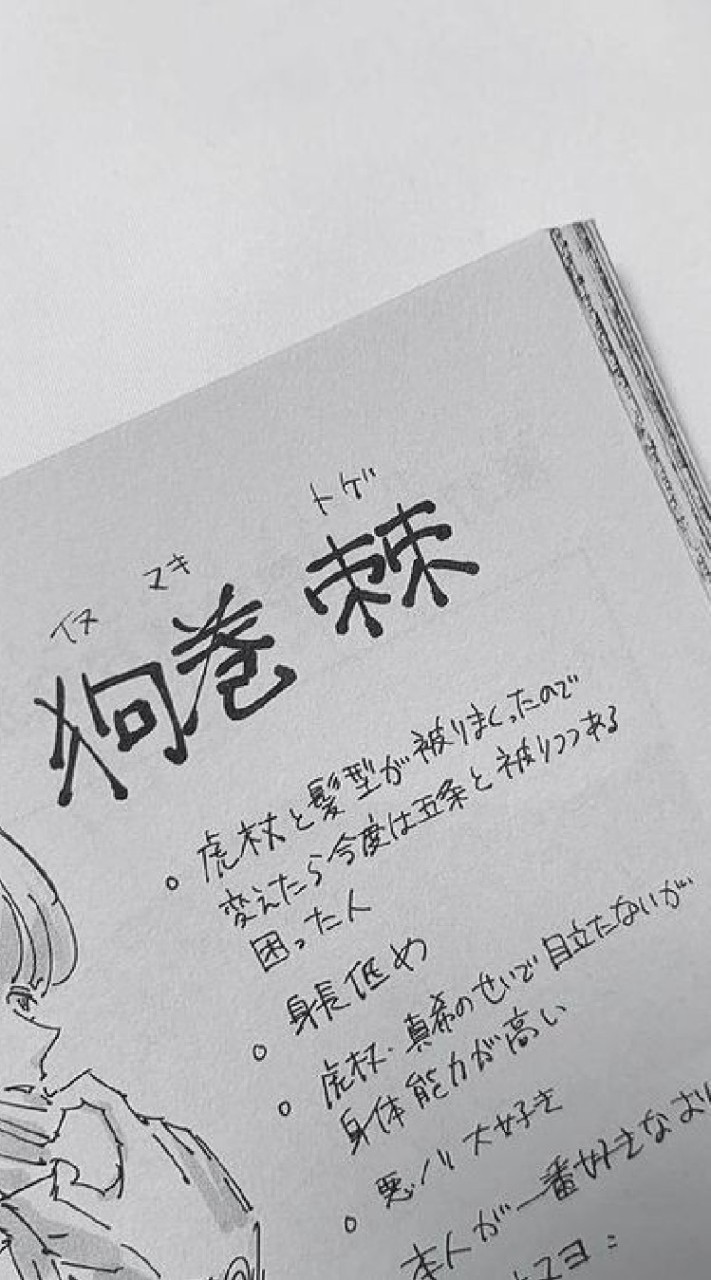 イヌ マキ トゲ
狗巻 棘
○ 虎杖と髪型が被りまくったので
変えたら今度は五条と被りつつある
困った人
○ 身長低め
○ 虎杖・真希のせいで目立たないが
身体能力が高い
○ 悪ノリ大好き
本人が一番好きなおに
マヨ: